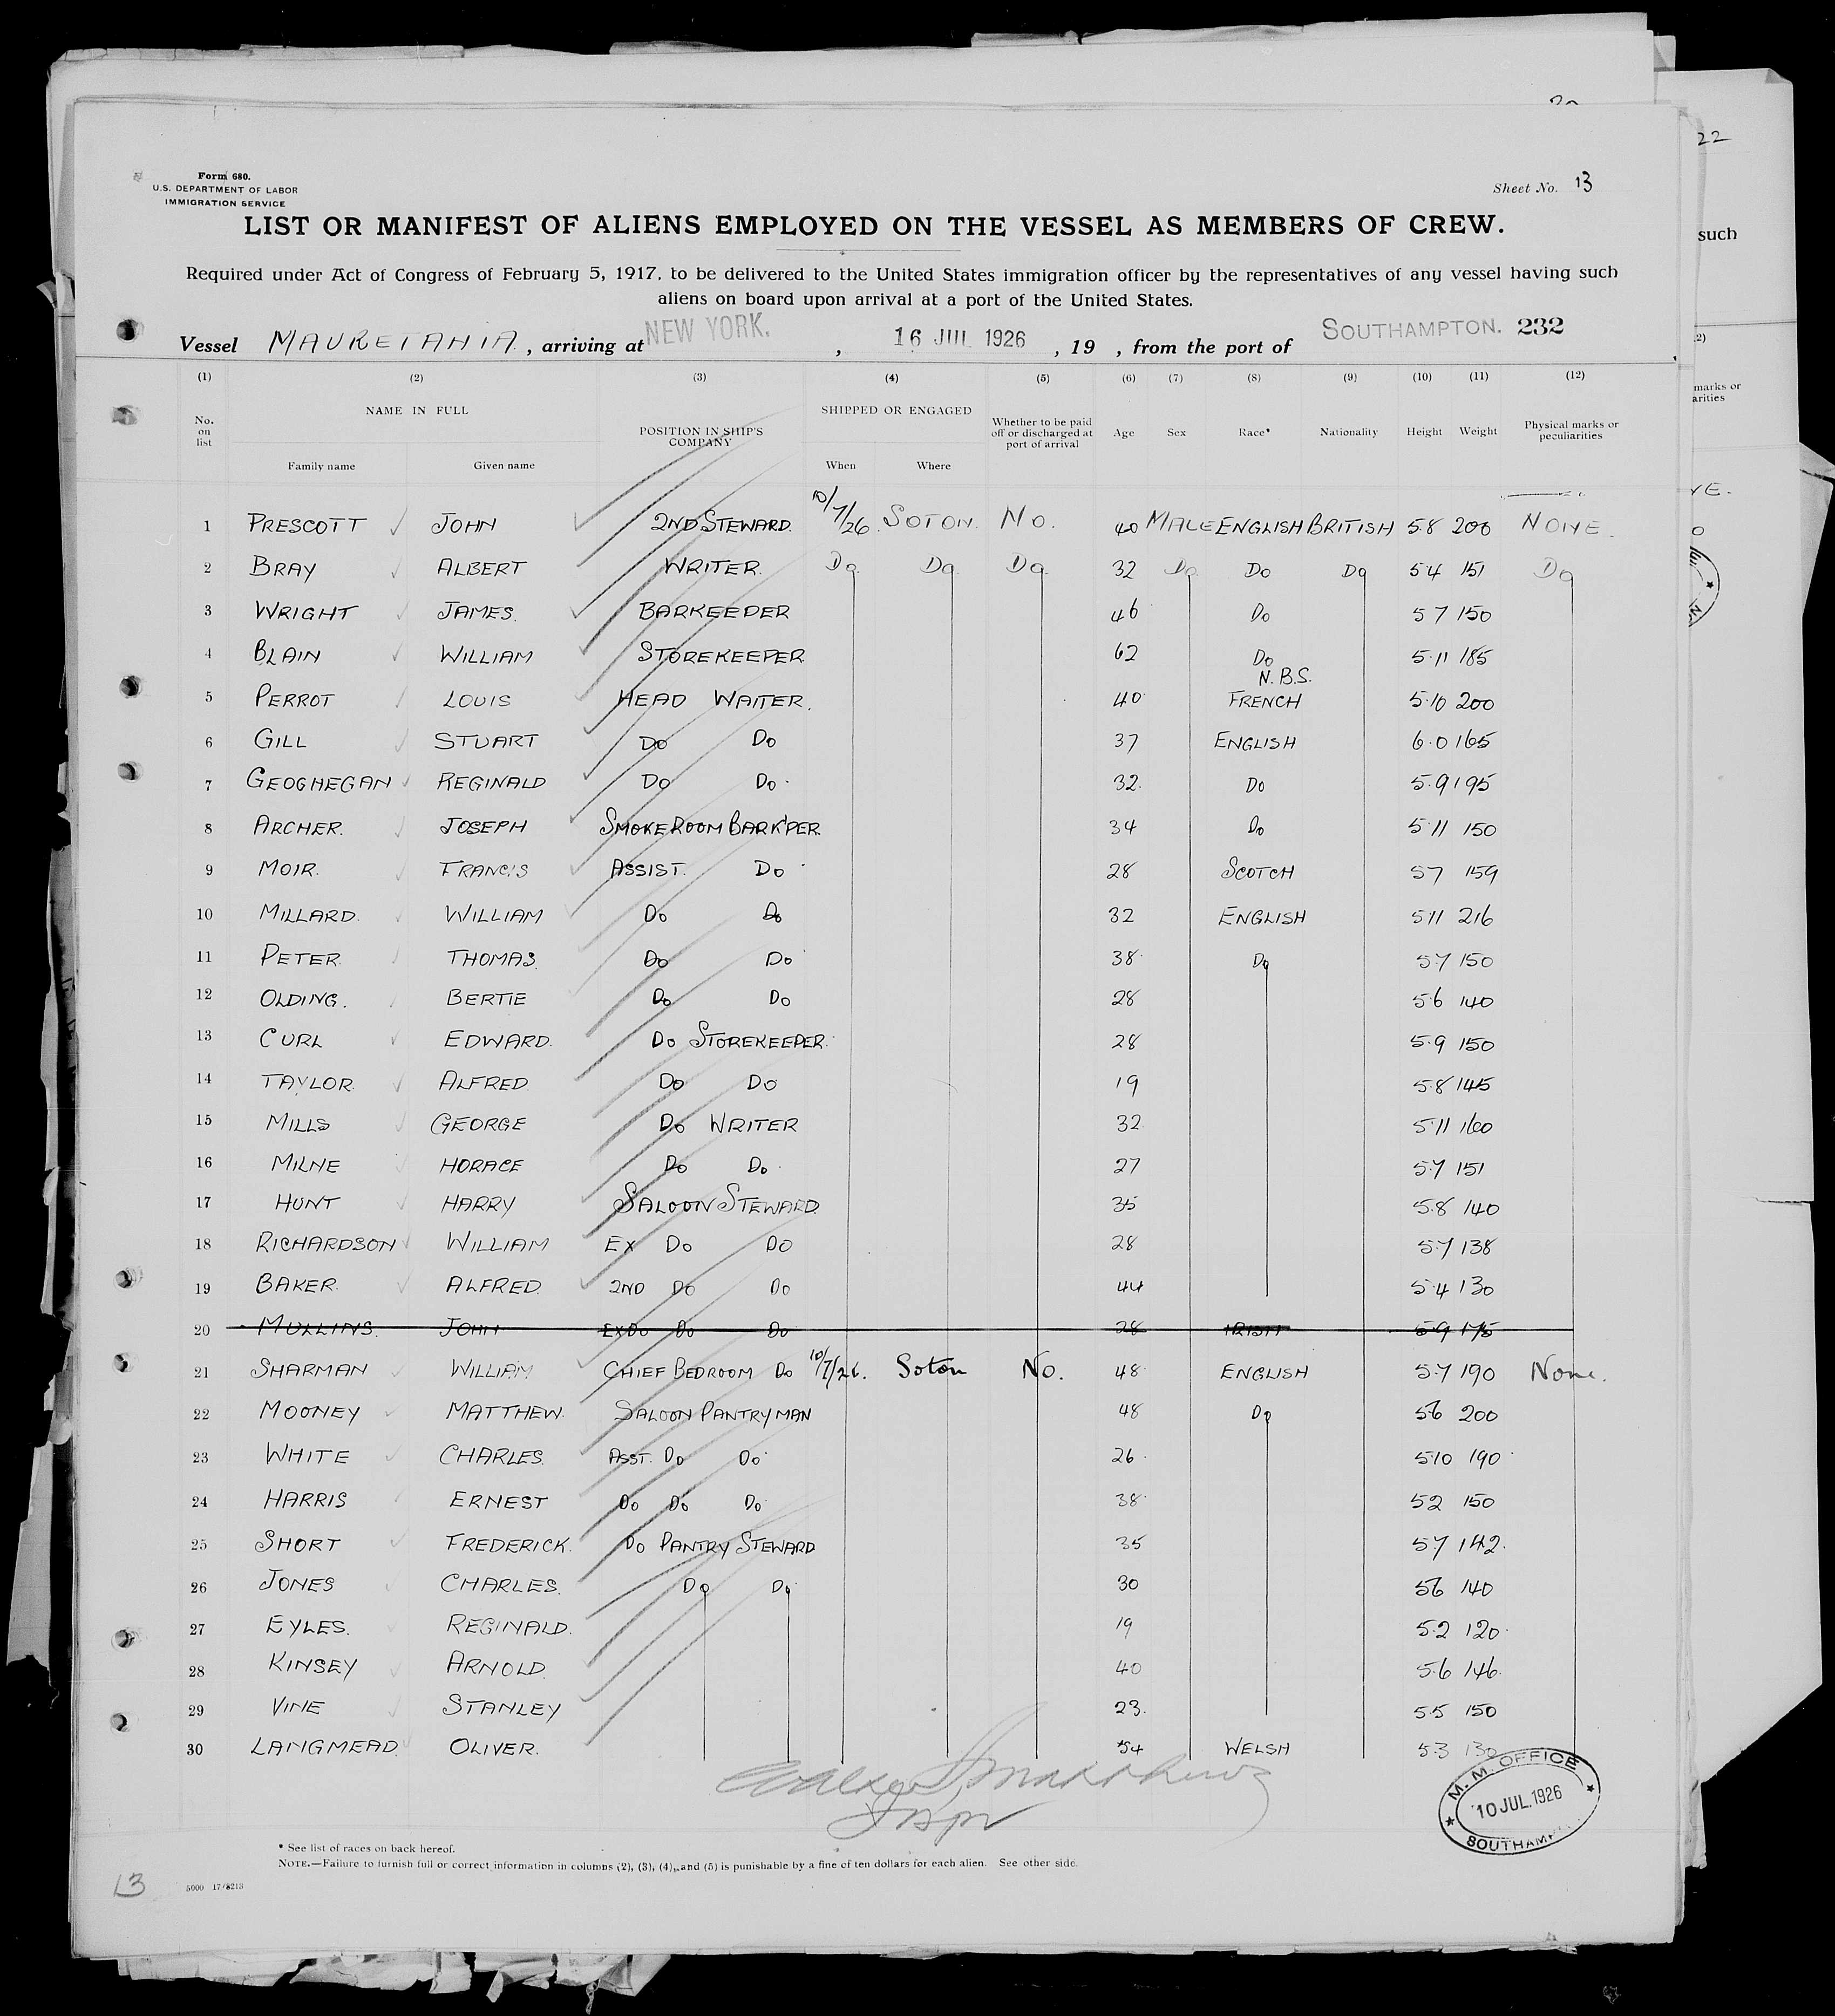 22
such
Form 680.
U.S. DEPARTMENT OF LABOR
IMMIGRATION SERVICE
Sheet No. 13
LIST OR MANIFEST OF ALIENS EMPLOYED ON THE VESSEL AS MEMBERS OF CREW.
Required under Act of Congress of February 5, 1917, to be delivered to the United States immigration officer by the representatives of any vessel having such
aliens on board upon arrival at a port of the United States.
Vessel MAURETANIA, arriving at NEW YORK. , 16 JUL 1926 , 19 , from the port of SOUTHAMPTON. 232
(1) (2) (3) (4) (5) (6) (7) (8) (9) (10) (11) (12)
No. on list NAME IN FULL Family name Given name POSITION IN SHIP'S COMPANY SHIPPED OR ENGAGED When Where Whether to be paid off or discharged at port of arrival Age Sex Race* Nationality Height Weight Physical marks or peculiarities
1 PRESCOTT JOHN 2ND STEWARD. 10/7/26. SOTON. No. 40 MALE ENGLISH BRITISH 5.8 200 NONE.
2 BRAY ALBERT WRITER. Do Do Do 32 Do Do Do 5.4 151 Do
3 WRIGHT JAMES. BARKEEPER 46 Do 5 7 150
4 BLAIN WILLIAM STOREKEEPER 62 Do 5.11 185
N.B.S.
5 PERROT LOUIS HEAD WAITER. 40 FRENCH 5.10 200
6 GILL STUART Do Do 37 ENGLISH 6.0 165
7 GEOGHEGAN REGINALD Do Do 32. Do 5.9 195
8 ARCHER. JOSEPH SMOKE ROOM BARK'PER. 34 Do 5.11 150
9 MOIR. FRANCIS ASSIST. Do 28 SCOTCH 5 7 159
10 MILLARD. WILLIAM Do Do 32 ENGLISH 5.11 216
11 PETER THOMAS. Do Do 38 Do 5.7 150
12 OLDING. BERTIE Do Do 28 5.6 140
13 CURL EDWARD. Do STOREKEEPER. 28 5.9 150
14 TAYLOR. ALFRED Do Do 19 5.8 145
15 MILLS GEORGE Do WRITER 32 5.11 160
16 MILNE HORACE Do Do 27 5.7 151
17 HUNT HARRY SALOON STEWARD. 35 5.8 140
18 RICHARDSON WILLIAM EX Do Do 28 5.7 138
19 BAKER. ALFRED. 2ND Do Do 44 5.4 130
20 MULLINS. JOHN EX Do Do Do 28 IRISH 5.9 175
21 SHARMAN WILLIAM CHIEF BEDROOM Do 10/7/26. Soton No. 48 ENGLISH 5.7 190 None.
22 MOONEY MATTHEW. SALOON PANTRYMAN 48 Do 5.6 200
23 WHITE CHARLES. ASST. Do Do 26 5.10 190
24 HARRIS ERNEST Do Do Do 38 5.2 150
25 SHORT FREDERICK. Do PANTRY STEWARD 35 5.7 142.
26 JONES CHARLES. Do Do 30 5.6 140
27 EYLES. REGINALD. 19 5.2 120
28 KINSEY ARNOLD. 40 5.6 146.
29 VINE STANLEY 23. 5.5 150
30 LANGMEAD. OLIVER. 54 WELSH 5.3 130
M. M. OFFICE
10 JUL. 1926
* See list of races on back hereof.
NOTE.—Failure to furnish full or correct information in columns (2), (3), (4), and (5) is punishable by a fine of ten dollars for each alien. See other side.
13